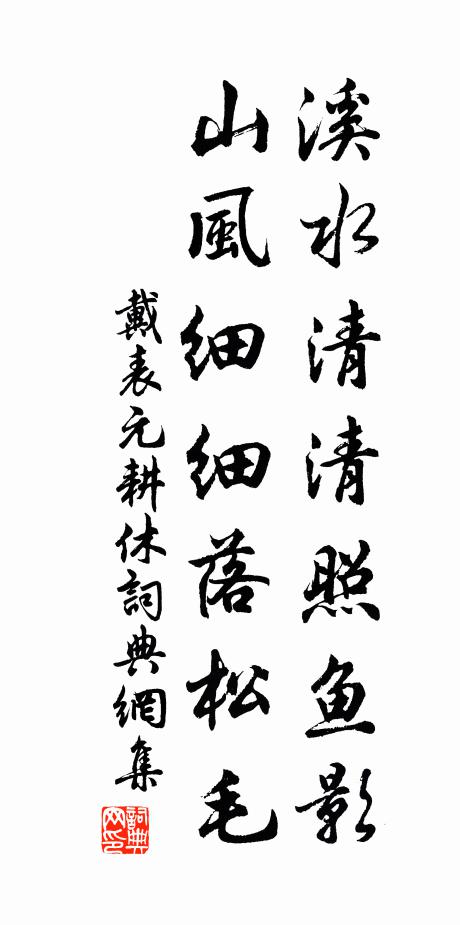 溪水清清照鱼影
山風细细落松毛
戴表元耕休詞典網集
詞典網印